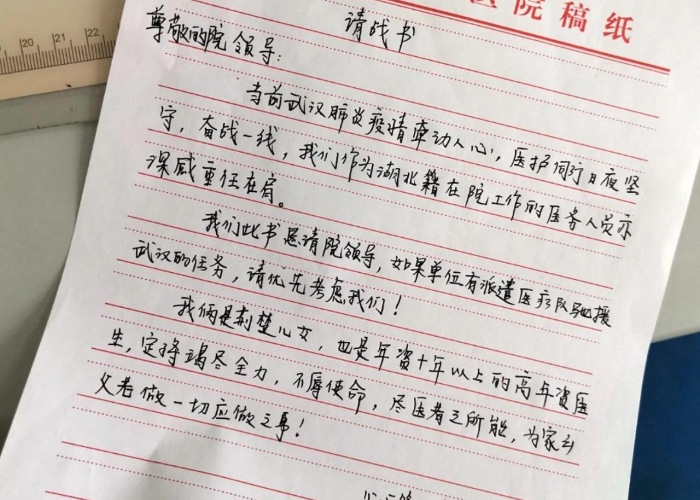 院稿纸
请战书
尊敬的院领导：
当前武汉肺炎疫情牵动人心，医护同行日夜坚
守，奋战一线，我们作为湖北籍在院工作的医务人员亦
深感重任在肩。
我们此书恳请院领导，如果单位有派遣医疗队驰援
武汉的任务，请优先考虑我们！
我俩是荆楚儿女，也是年资十年以上的高年资医
生，定将竭尽全力，不辱使命，尽医者之所能，为家乡
父老做一切应做之事！
19 20 21 22